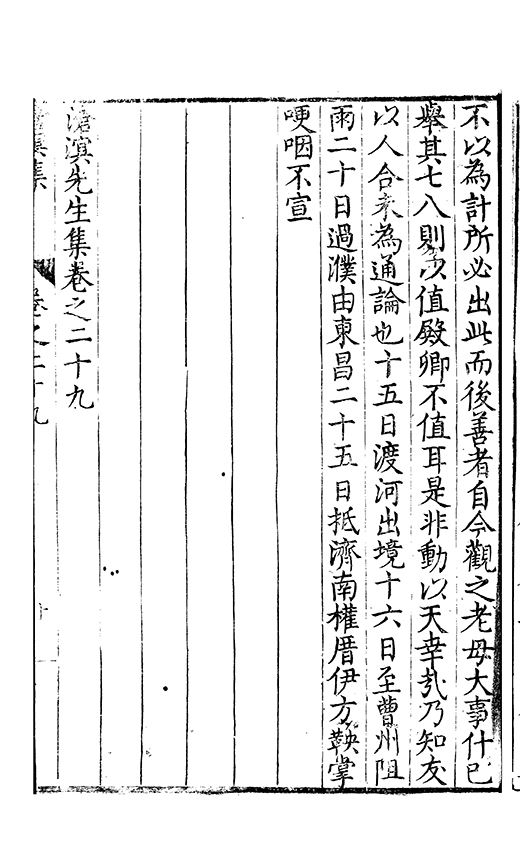 不以為計所必出此而後善者自今觀之老母大事什已
舉其七八則以值殿卿不值耳是非動以天幸哉乃知友
以人合者為通論也十五日渡河出境十六日至曹州阻
雨二十日過濮由東昌二十五日抵濟南權厝伊方鞅掌
哽咽不宣
滄溟先生集卷之二十九
卷之二十九